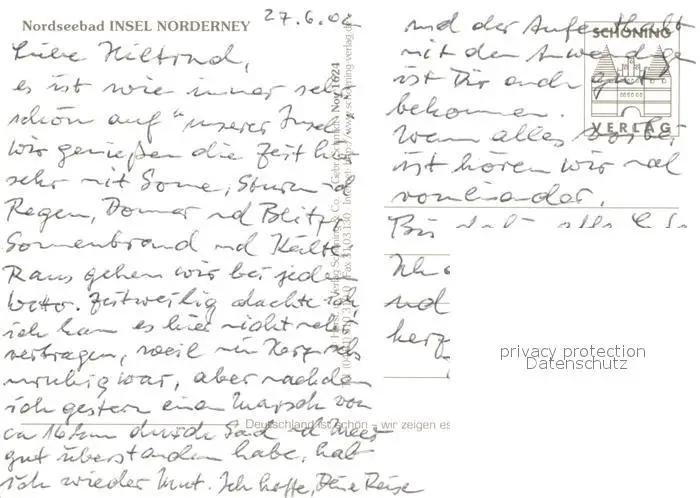 Nordseebad INSEL NORDERNEY
27.6.02
Liebe Hiltrud,
es ist wie immer sehr
schön auf "unserer Insel"
Wir genießen die Zeit hier
sehr mit Sonne, Sturm und
Regen, Donner und Blitz,
Sonnenbrand und Kälte.
Raus gehen wir bei jedem
Wetter. Zeitweilig dachte ich
ich kann es hier nicht mehr
vertragen, weil mein Herz
unruhig war, aber nachdem
ich gestern einen Marsch von
ca 16 km durch Sand und Meer
gut überstanden habe, hab
ich wieder Mut. Ich hoffe, Deine Reise
und der Aufenthalt
mit den
ist Dir auch gut
bekommen.
Wenn alles vorbei
ist hören wir mal
voneinander.
Bis dahin alles
Ich
und
herz
SCHÖNING
VERLAG
Deutschland ist schön – wir zeigen es
privacy protection
Datenschutz